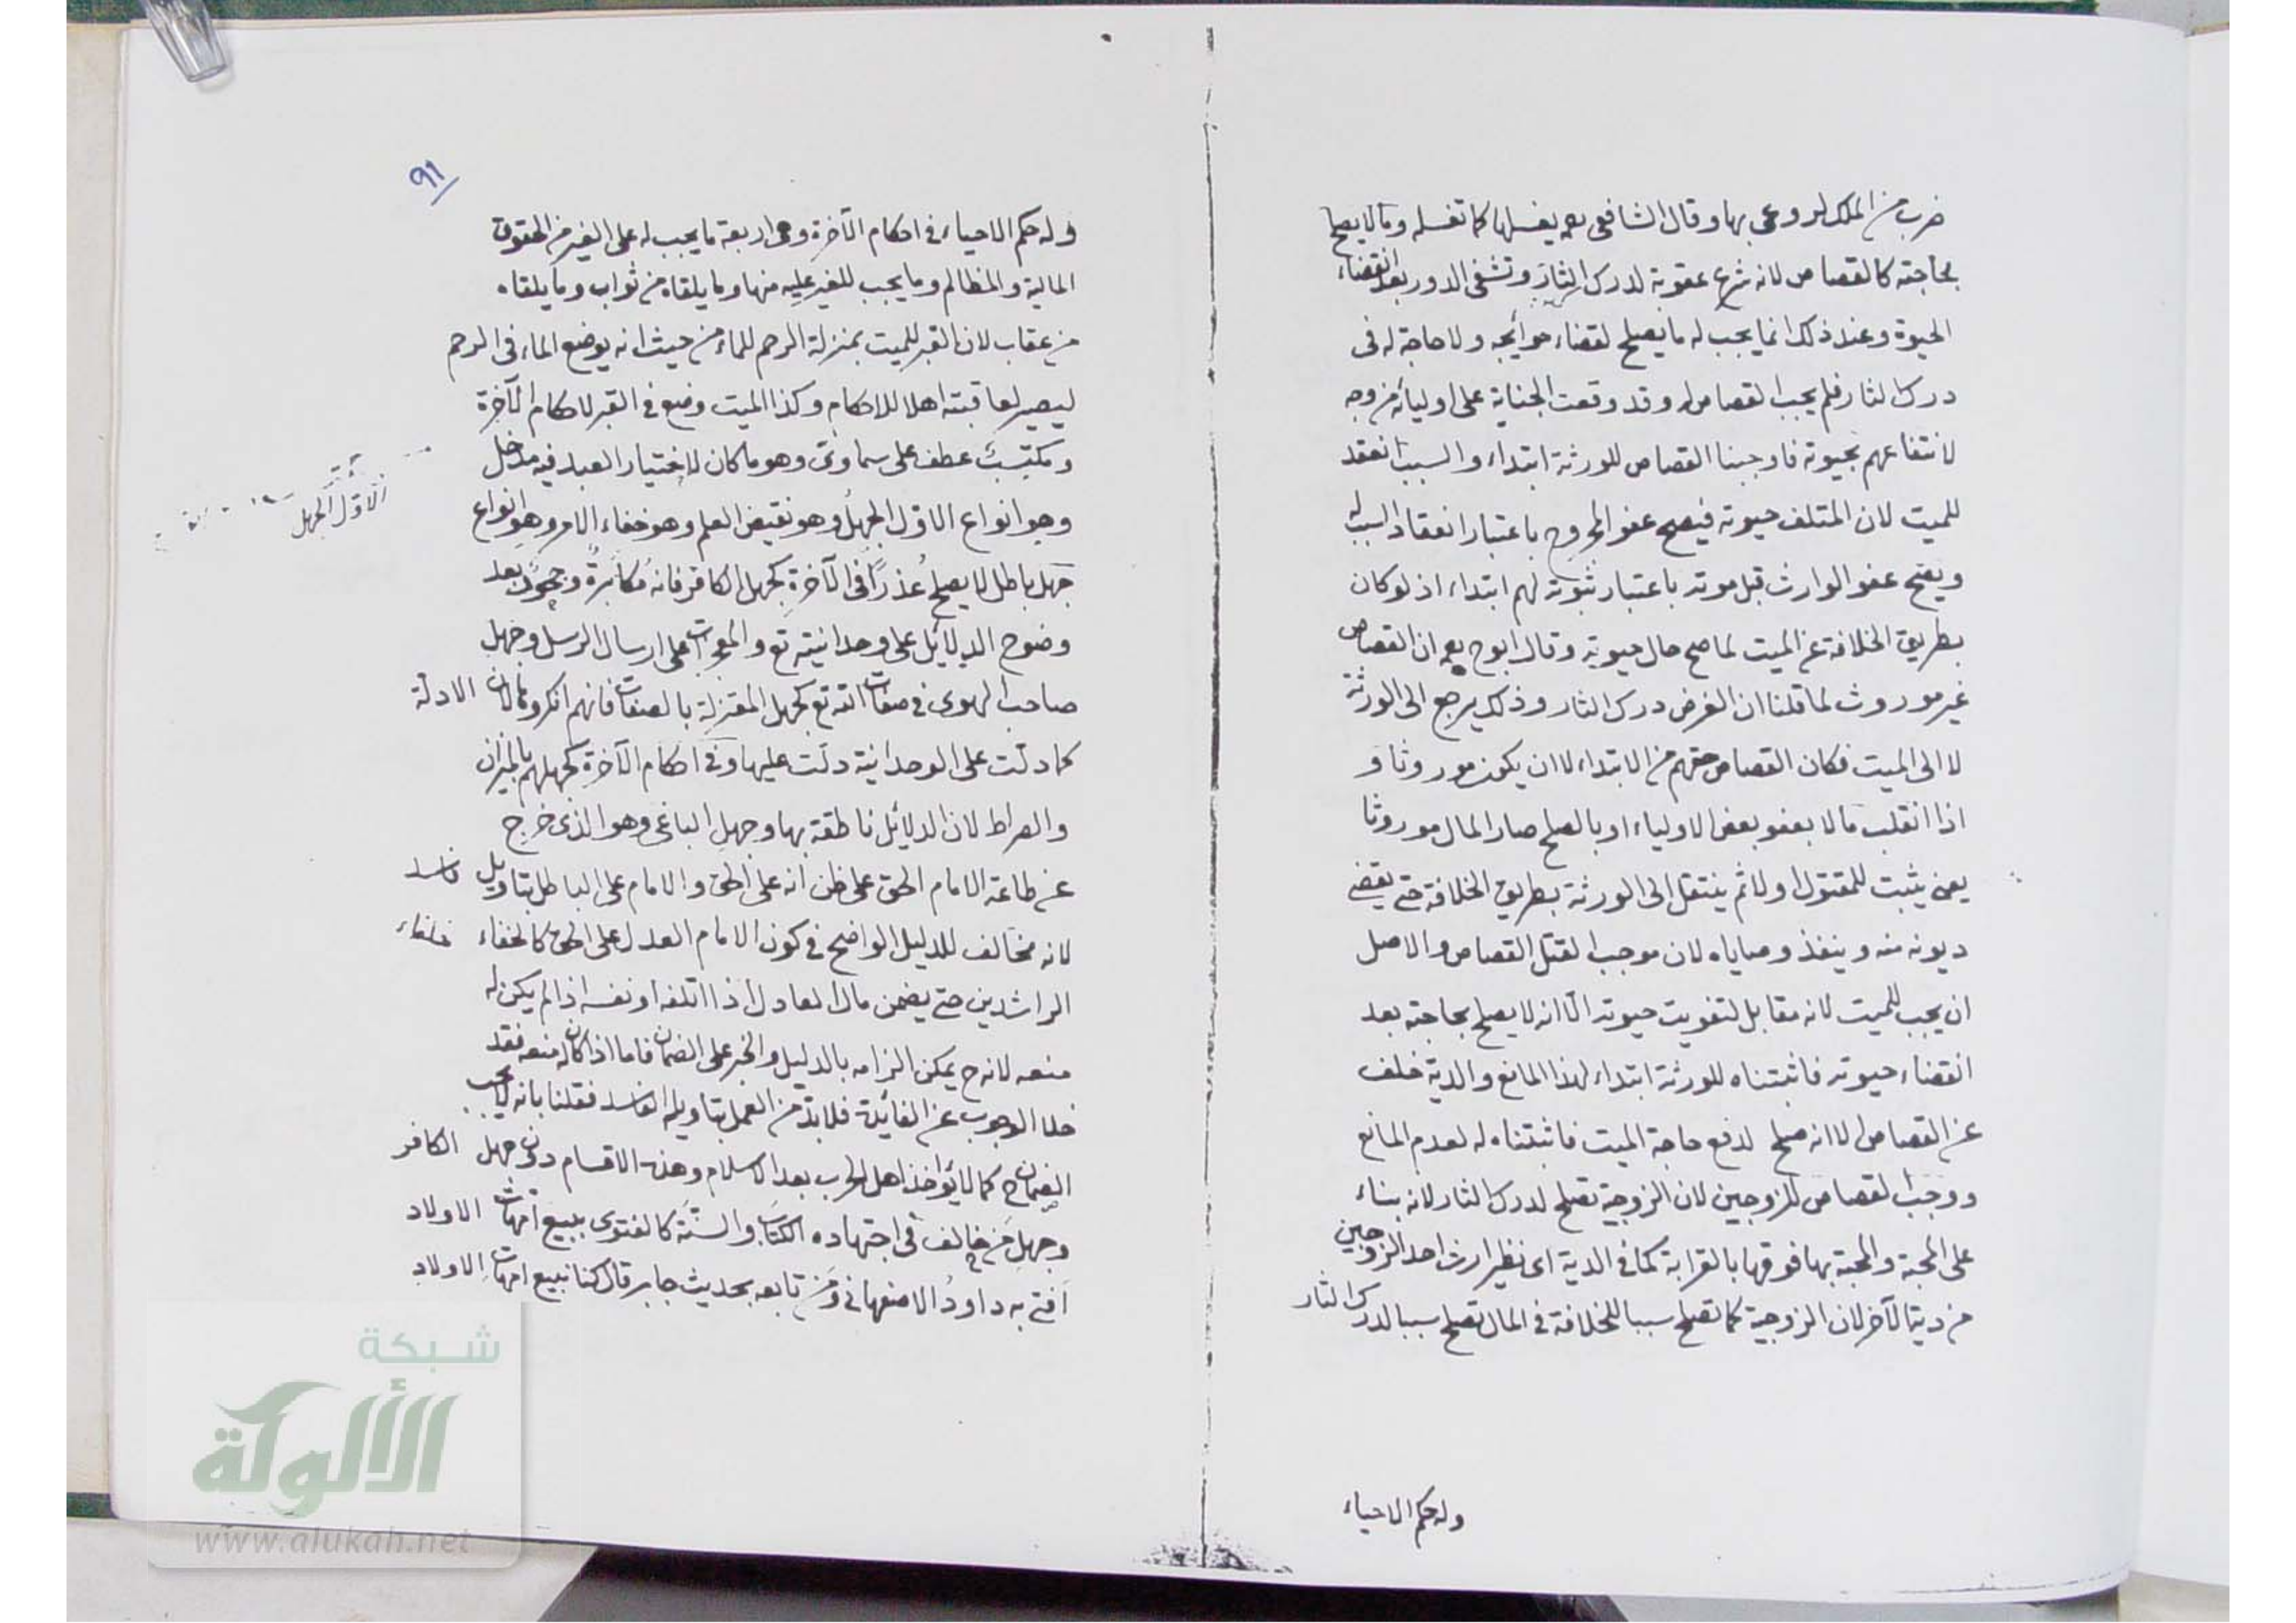 ضرب من الملك لروعى بها وقال الشافعى رحمه يغسلها كما تغسله وما لا يصلح
بحاجته كالقصاص لانه شرع عقوبة لدرك الثار وتشفى الصدور بعد انقضاء
الحيوة وعند ذلك انما يجب له ما يصلح لقضاء حوائجه ولا حاجة له فى
درك الثار فلم يجب القصاص له وقد وقعت الجناية على اوليائه من وجه
لانتفاعهم بحيوته فاوجبنا القصاص للورثة ابتداء والسبب انعقد
للميت لان المتلف حيوته فيصح عفو المجروح باعتبار انعقاد السبب له
ويصح عفو الوارث قبل موته باعتبار ثبوته لهم ابتداء اذ لو كان
بطريق الخلافة عن الميت لما صح حال حيوته وقال ابو ح رحمه ان القصاص
غير موروث لما قلنا ان الغرض درك الثار وذلك يرجع الى الورثة
لا الى الميت فكان القصاص حقهم من الابتداء لا ان يكون موروثا و
اذا انقلب مالا بعفو بعض الاولياء او بالصلح صار المال موروثا
يعنى يثبت للمقتول اولا ثم ينتقل الى الورثة بطريق الخلافة حتى يقضى
ديونه منه وينفذ وصاياه لان موجب القتل القصاص والاصل
ان يجب للميت لانه مقابل لتفويت حيوته الا انه لا يصلح بحاجته بعد
انقضاء حيوته فاثبتناه للورثة ابتداء لهذا المانع والدية خلف
عن القصاص الا انه صلح لدفع حاجة الميت فاثبتناه له لعدم المانع
ووجب القصاص للزوجين لان الزوجية تصلح لدرك الثار لانه بناء
على المحبة والمحبة بها فوقها بالقرابة كما فى الدية اى نظير ارث احد الزوجين
من دية الآخر لان الزوجية كما تصلح سببا للخلافة فى المال تصلح سببا لدرك الثار
وله حكم الاحياء
٩١
وله حكم الاحياء فى احكام الآخرة وهى اربعة ما يجب له على الغير من الحقوق
المالية والمظالم وما يجب للغير عليه منها وما يلقاه من ثواب وما يلقاه
من عقاب لان القبر للميت بمنزلة الرحم للماء من حيث انه يوضع الماء فى الرحم
ليصير لعاقبته اهلا للاحكام وكذا الميت وضع فى القبر لاحكام الآخرة
ومكتسب عطف على سماوى وهو ما كان لاختيار العبد فيه مدخل
وهو انواع الاول الجهل وهو نقيض العلم وهو خفاء الامر وهو انواع
الاول الجهل
جهل باطل لا يصلح عذرا فى الآخرة كجهل الكافر فانه مكابرة وجحود بعد
وضوح الدلائل على وحدانيته تع والمعجزات على ارسال الرسل وجهل
صاحب الهوى فى صفات الله تع كجهل المعتزلة بالصفات فانهم انكروها لان الادلة
كما دلت على الوحدانية دلت عليها وفى احكام الآخرة كجهلهم بالميزان
والصراط لان الدلائل ناطقة بها وجهل الباغى وهو الذى خرج
عن طاعة الامام الحق على ظن انه على الحق والامام على الباطل بتاويل فاسد
لانه مخالف للدليل الواضح فى كون الامام العدل على الحق كالخفاء خلفاء
الراشدين حتى يضمن مال العادل اذا اتلفه او نفسه اذا لم يكن له
منعه لانه ح يمكن الزامه بالدليل والخبر على الضمان فاما اذا كان له منعه فقد
خلا الوجوب عن الفائدة فلا بد من العمل بتاويله الفاسد فقلنا بانه لا يجب
الضمان ح كما لا يؤاخذ اهل الحرب بعد الاسلام وهذه الاقسام دون جهل الكافر
وجهل من خالف فى اجتهاده الكتاب والسنة كالفتوى ببيع امهات الاولاد
افتى به داود الاصفهانى ومن تابعه بحديث جابر قال كنا نبيع امهات الاولاد
شبكة
الألوكة
www.alukah.net